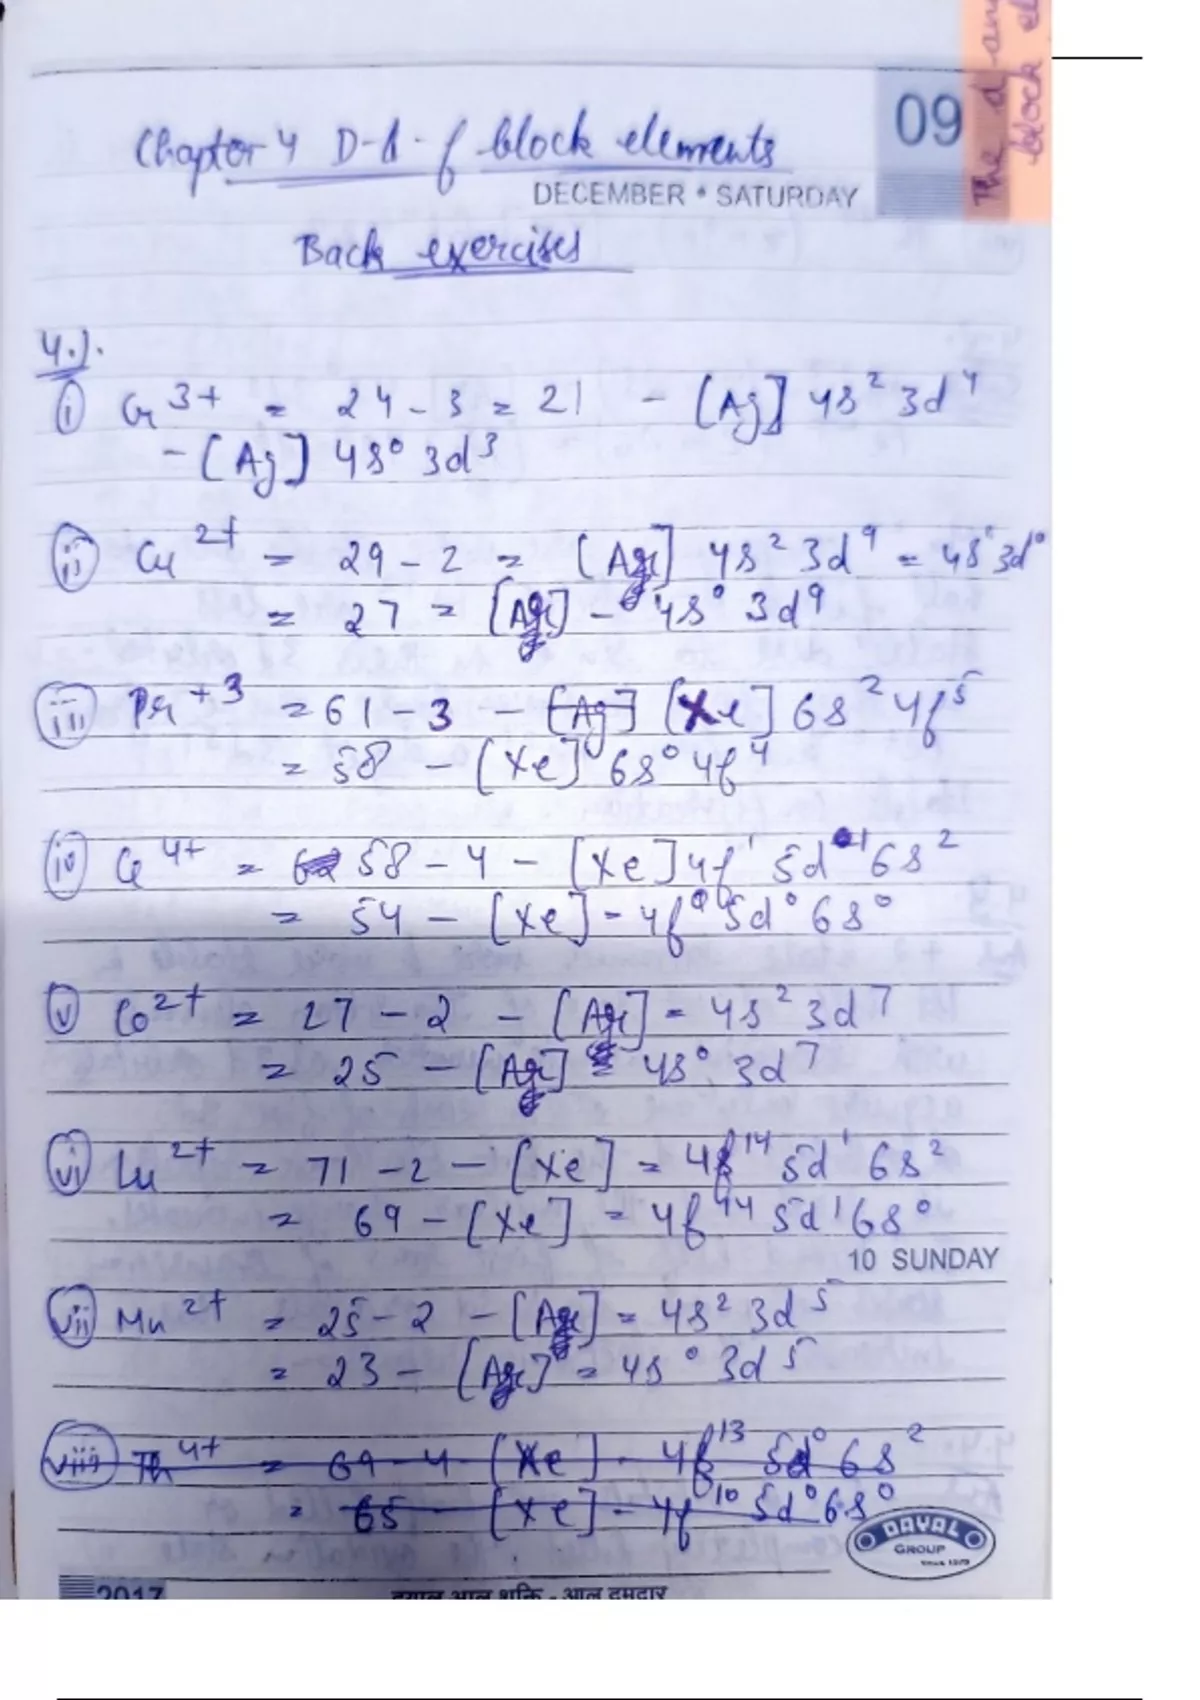 The d-and
block el
09
Chapter 4 D-&-f block elements
DECEMBER • SATURDAY
Back exercises
4.).
(i) Cr³⁺ = 24 - 3 = 21 - [Ag] 4s² 3d⁴
- [Ag] 4s⁰ 3d³
(ii) Cu²⁺ = 29 - 2 = [Ag] 4s² 3d⁹ = 4s¹3d¹⁰
= 27 = [Ag] - 4s⁰ 3d⁹
(iii) Pr⁺³ = 61 - 3 - [Ag] [Xe] 6s² 4f⁵
= 58 - [Xe] 6s⁰ 4f⁴
(iv) Ce⁴⁺ = 58 - 4 - [Xe] 4f¹ 5d¹ 6s²
= 54 - [Xe] - 4f⁰ 5d⁰ 6s⁰
(v) Co²⁺ = 27 - 2 - [Ag] = 4s² 3d⁷
= 25 - [Ag] = 4s⁰ 3d⁷
(vi) Lu²⁺ = 71 - 2 - [Xe] = 4f¹⁴ 5d¹ 6s²
= 69 - [Xe] = 4f¹⁴ 5d¹ 6s⁰
10 SUNDAY
(vii) Mn²⁺ = 25 - 2 - [Ag] = 4s² 3d⁵
= 23 - [Ag] = 4s⁰ 3d⁵
(viii) Th⁴⁺ = 69 - 4 - [Xe] - 4f¹³ 5d⁰ 6s²
= 65 - [Xe] - 4f¹⁰ 5d⁰ 6s⁰
DAYAL
GROUP
2017
दयाल आल शक्ति - आल दमदार